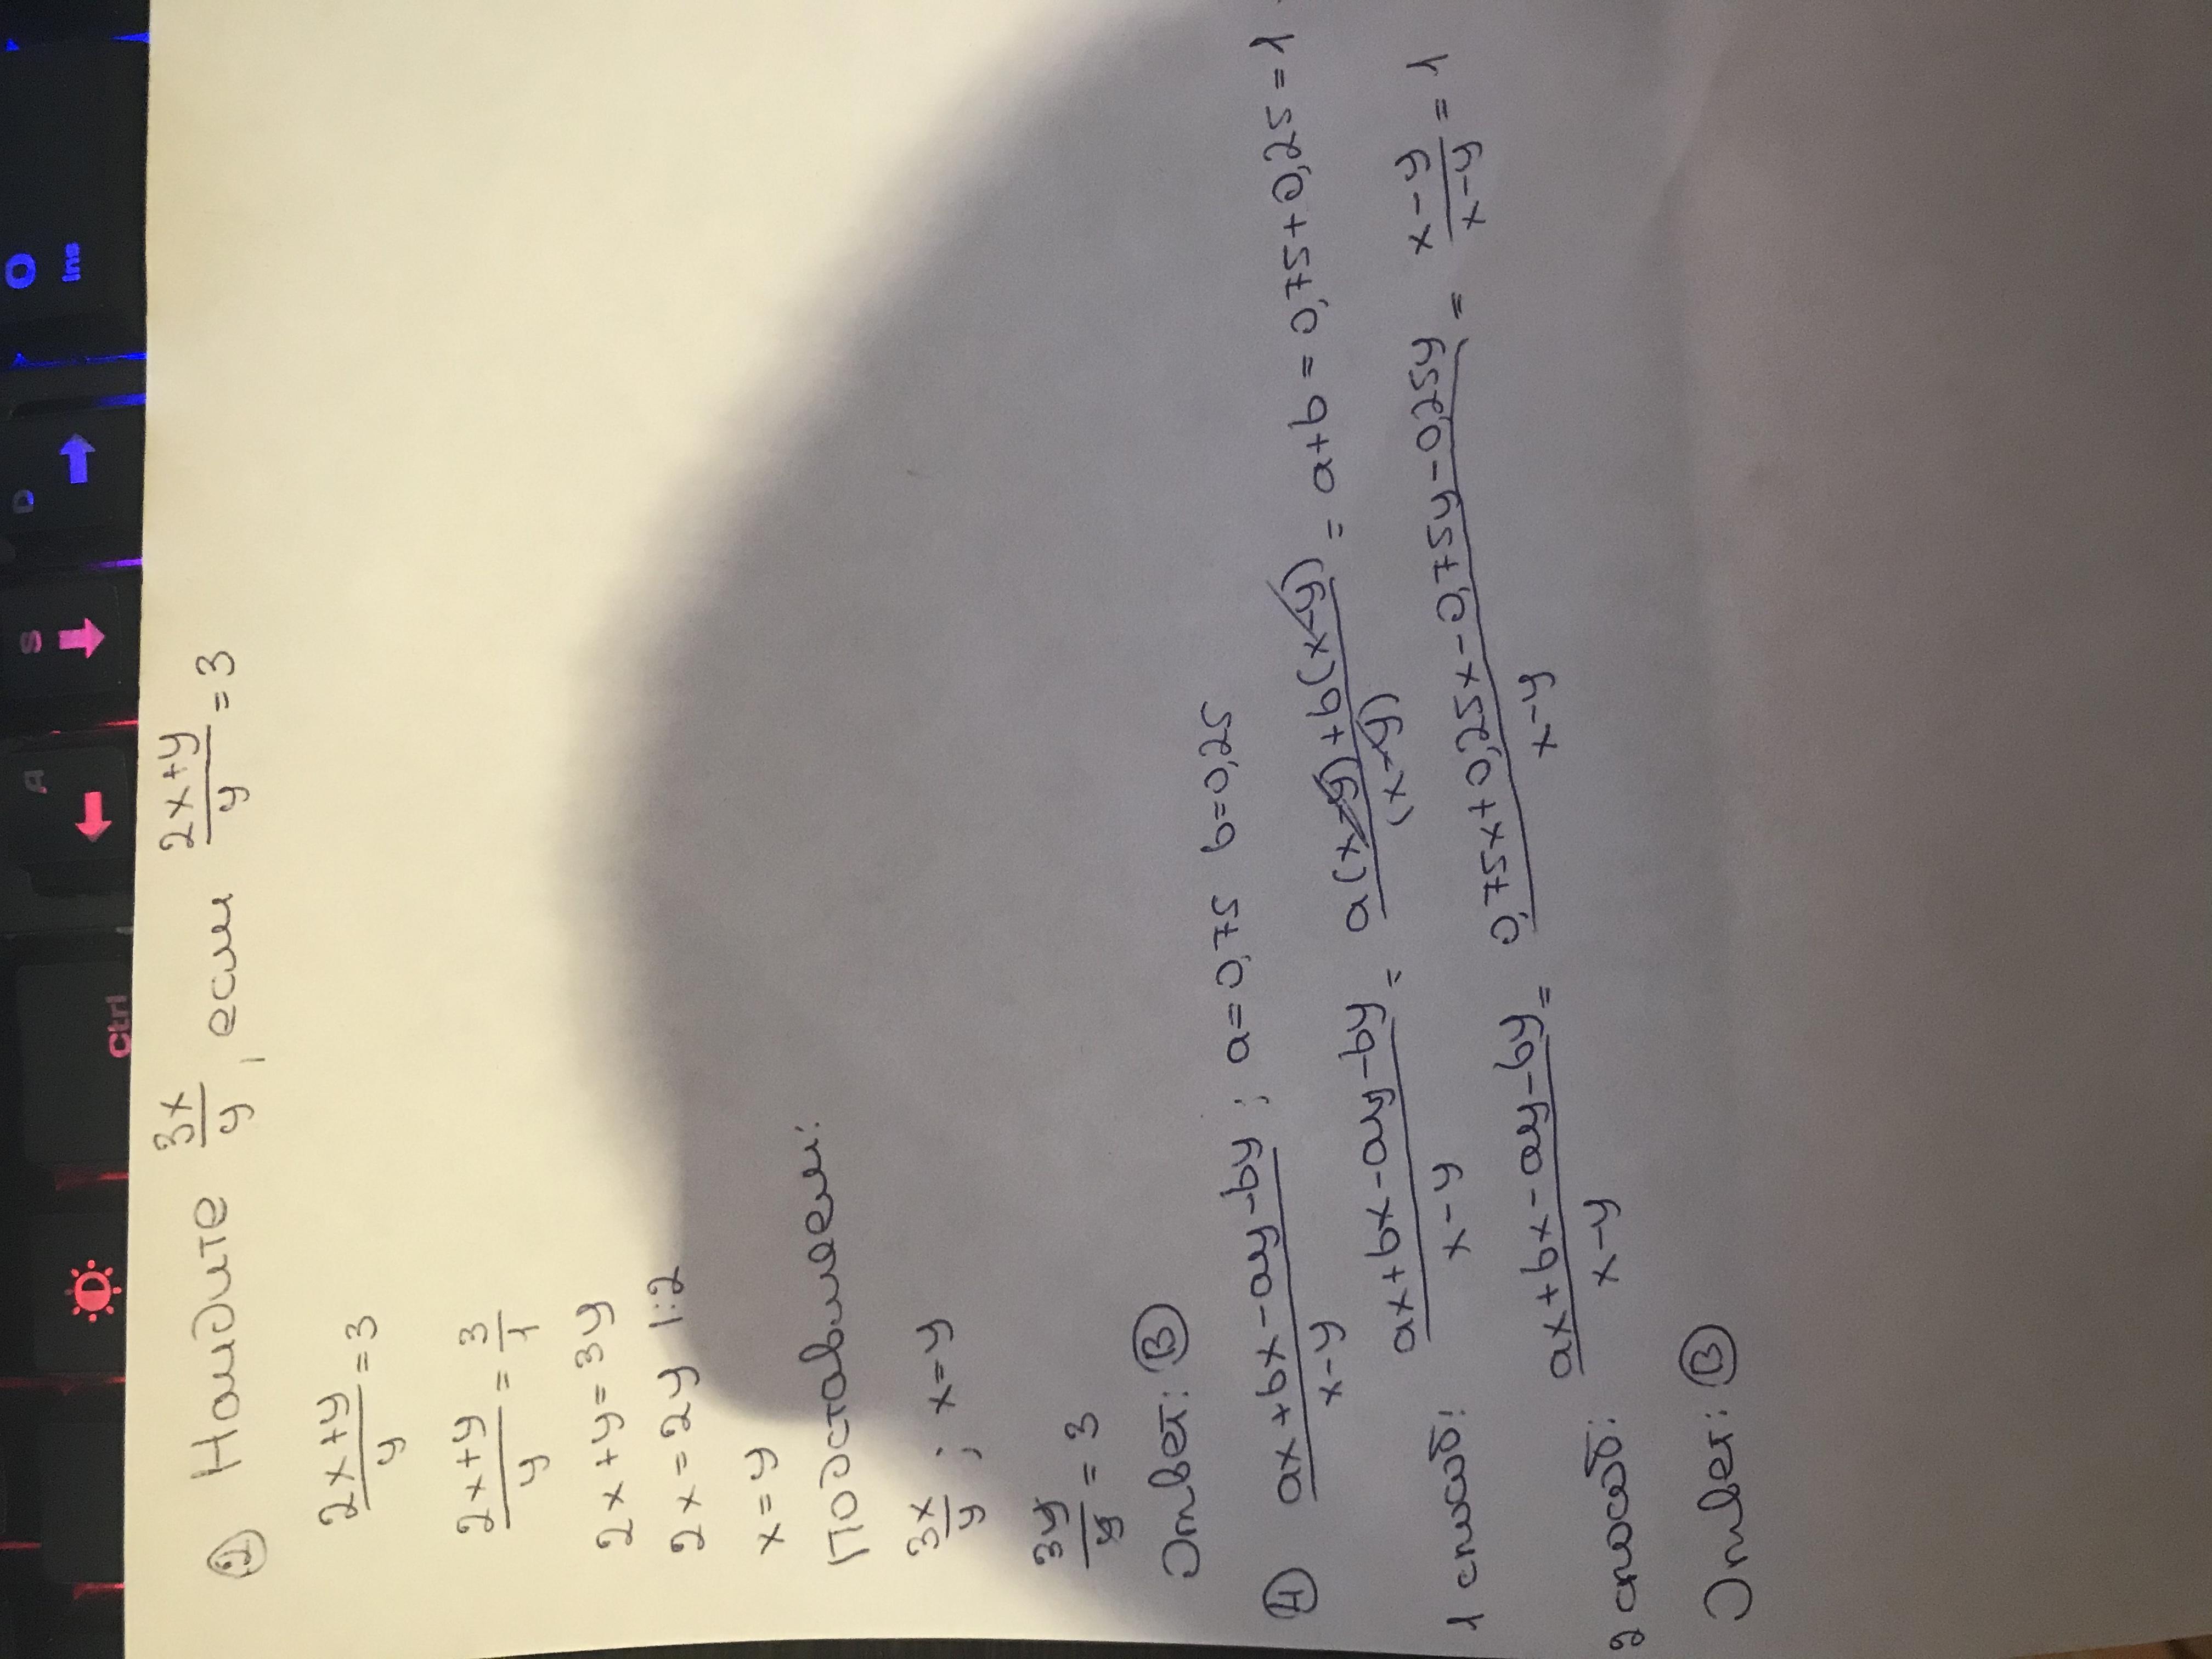 ② Найдите 3x/y, если (2x+y)/y = 3
(2x+y)/y = 3
(2x+y)/y = 3/1
2x+y=3y
2x=2y |:2
x=y
Подставляем:
3x/y ; x=y
3y/y = 3
Ответ: Ⓑ
④ (ax+bx-ay-by)/(x-y) ; a=0,75 b=0,25
1 способ: (ax+bx-ay-by)/(x-y) = (a(x-y)+b(x-y))/(x-y) = a+b=0,75+0,25=1
2 способ: (ax+bx-ay-by)/(x-y) = (0,75x+0,25x-0,75y-0,25y)/(x-y) = (x-y)/(x-y) = 1
Ответ: Ⓑ
Ctrl
A
S
D
O
Ins